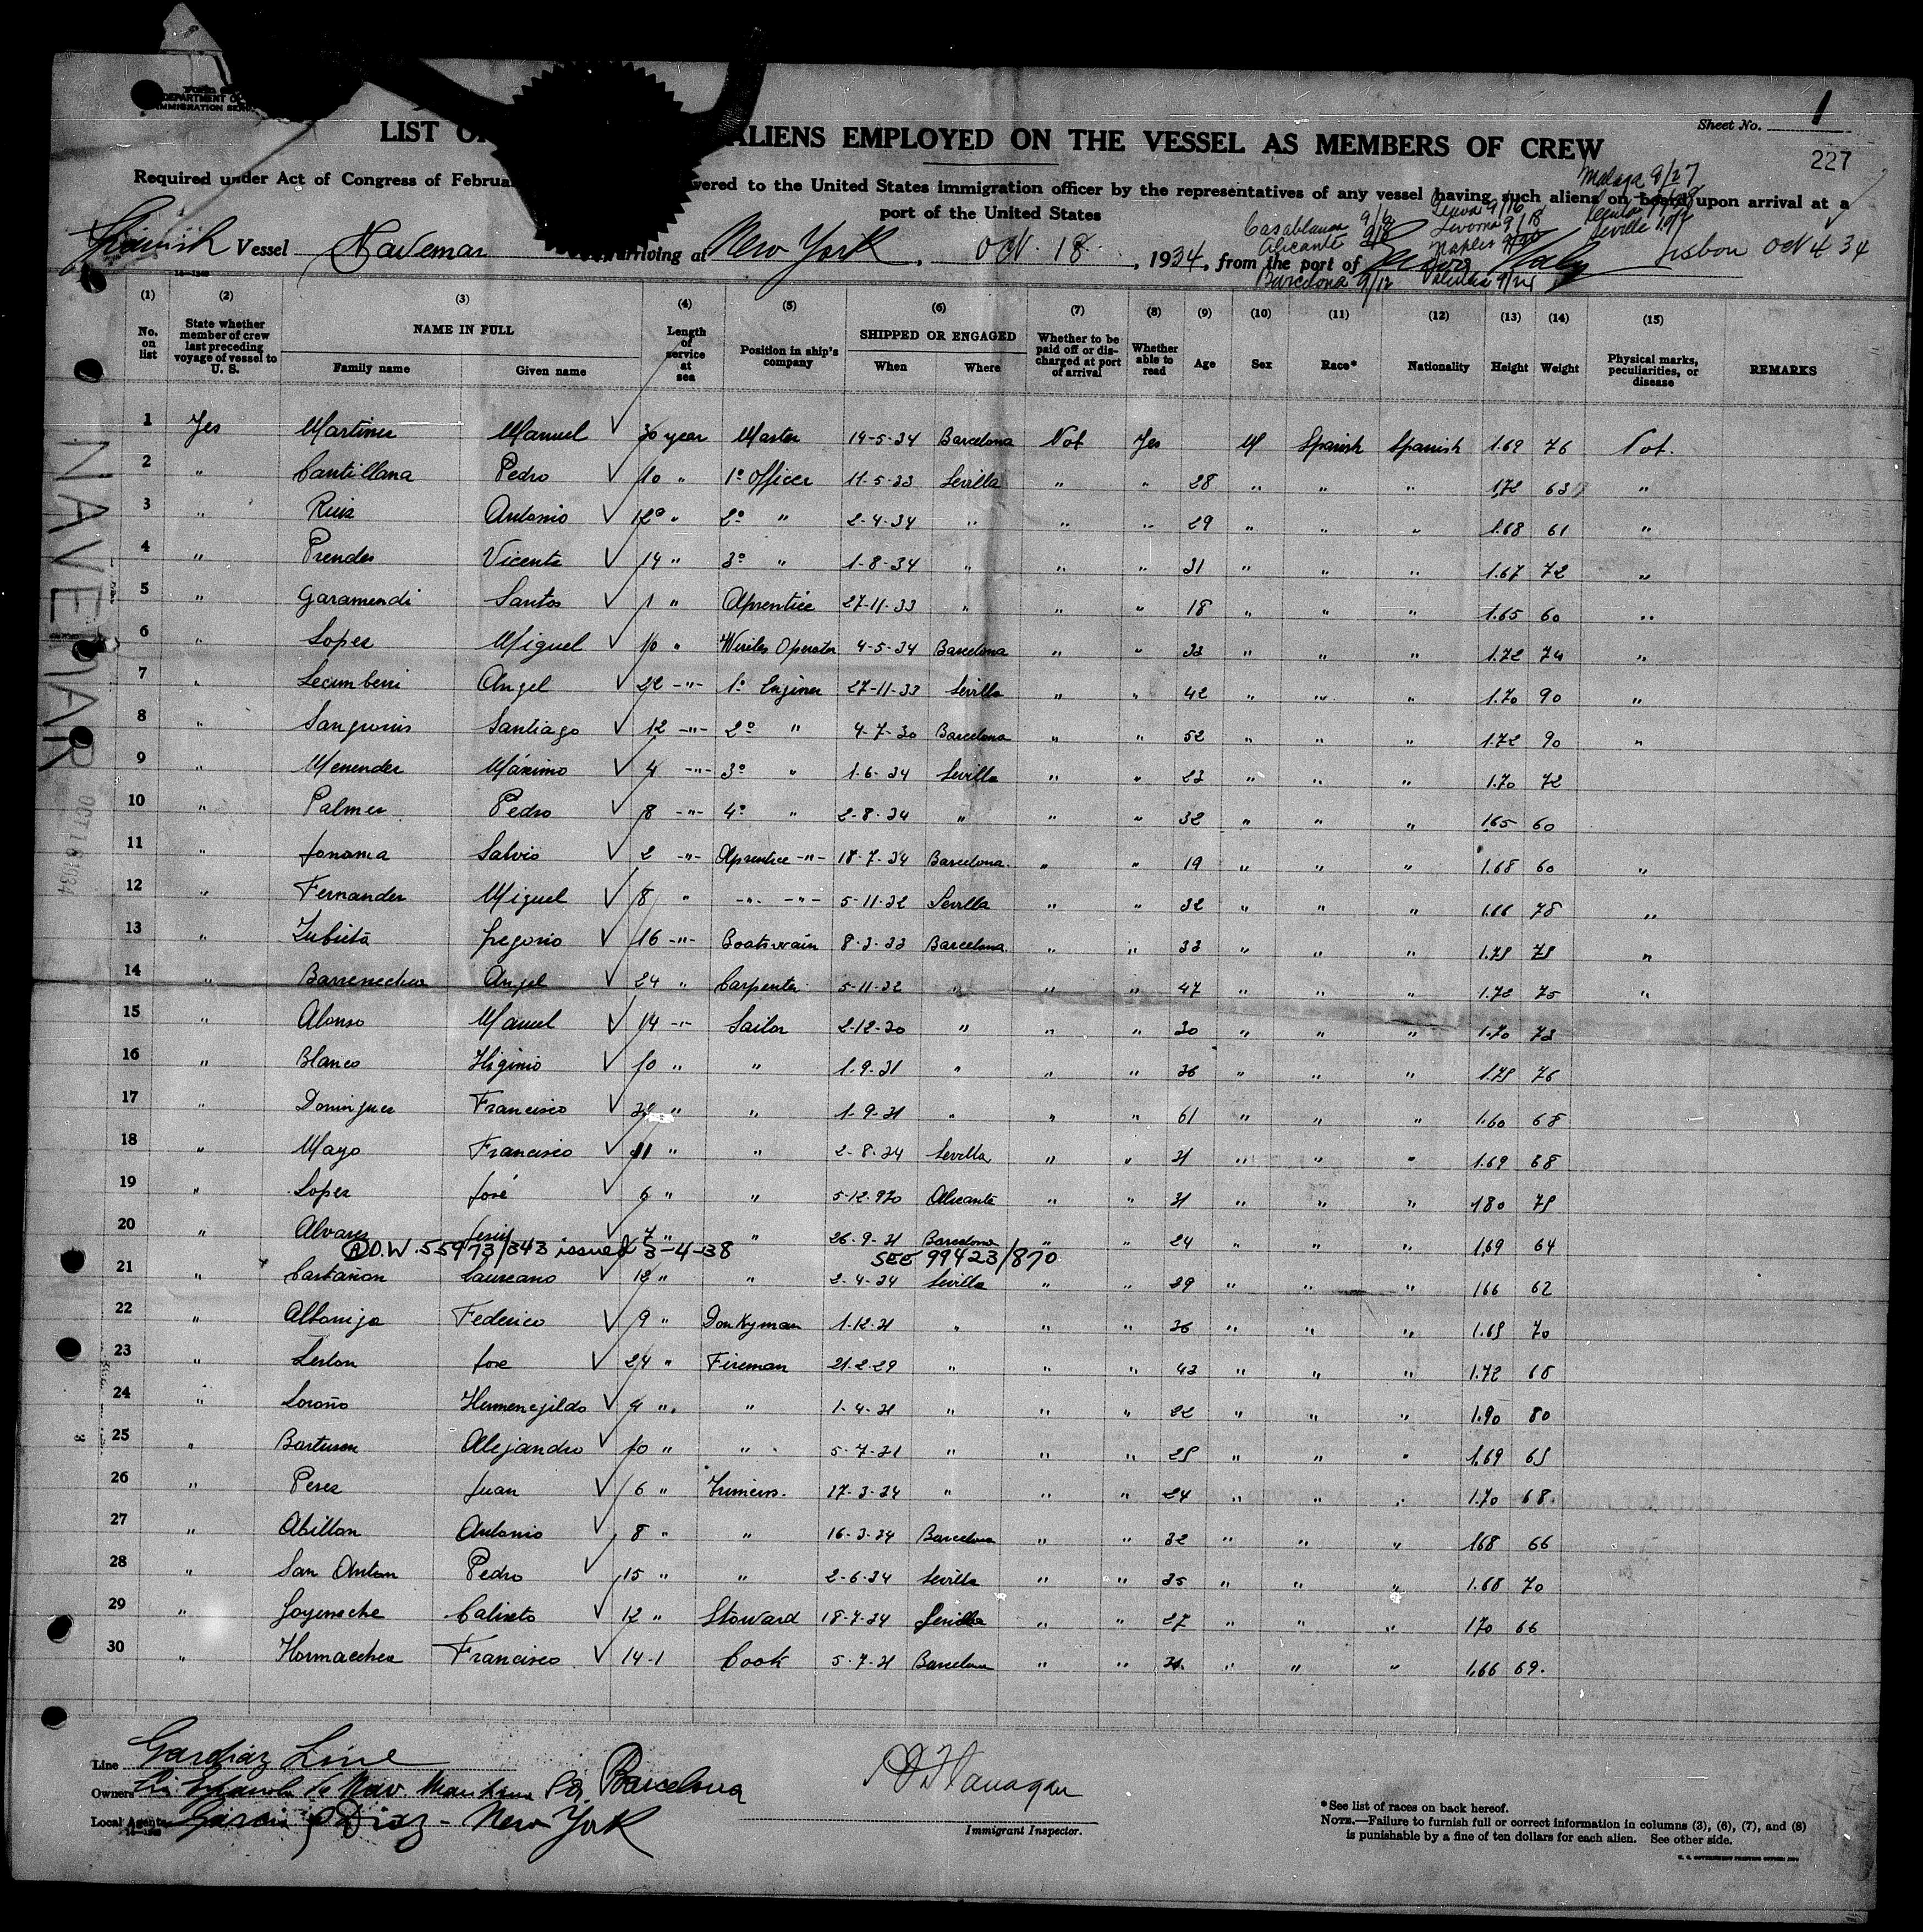 DEPARTMENT OF
IMMIGRATION SER
Sheet No. 1
227
LIST O ALIENS EMPLOYED ON THE VESSEL AS MEMBERS OF CREW
Required under Act of Congress of Februa vered to the United States immigration officer by the representatives of any vessel having such aliens on board upon arrival at a
port of the United States
Malaga 9/27
Casablanca 9/6
Alicante
Barcelona 9/12
Genoa 9/16
Livorno 9/18
Naples
Valencia 9/24
Seville
Spanish Vessel Navemar arriving at New York, Oct. 18, 1934, from the port of Italy Lisbon Oct 4 34
(1) (2) (3) (4) (5) (6) (7) (8) (9) (10) (11) (12) (13) (14) (15)
No. on list
State whether member of crew last preceding voyage of vessel to U. S.
NAME IN FULL
Family name Given name
Length of service at sea
Position in ship's company
SHIPPED OR ENGAGED
When Where
Whether to be paid off or discharged at port of arrival
Whether able to read
Age Sex Race* Nationality Height Weight
Physical marks, peculiarities, or disease
REMARKS
1 Yes Martinez Manuel 30 year Master 14-5-34 Barcelona Not Yes M Spanish Spanish 1.69 76 Not.
2 " Cantillana Pedro 10 " 1º Officer 11-5-33 Sevilla " " 28 " " " 1.72 63 "
3 " Ruiz Antonio 12 " 2º " 2-4-34 " " " 29 " " " 1.68 61 "
4 " Prendes Vicente 14 " 3º " 1-8-34 " " " 31 " " " 1.67 72 "
5 " Garamendi Santos 1 " Aprentice 27-11-33 " " " 18 " " " 1.65 60 "
6 " Lopez Miguel 10 " Wireles Operator 4-5-34 Barcelona " " 33 " " " 1.72 74 "
7 " Lecumberri Angel 22 -"- 1º Enginer 27-11-33 Sevilla " " 42 " " " 1.70 90 "
8 " Sangronis Santiago 12 -"- 2º " 4-7-30 Barcelona " " 52 " " " 1.72 90 "
9 " Menendez Máximo 4 -"- 3º " 1-6-34 Sevilla " " 23 " " " 1.70 72
10 " Palmer Pedro 8 -"- 4º " 2-8-34 " " " 32 " " " 1.65 60
11 " Jonama Salvio 2 -"- Aprentice -"- 18-7-34 Barcelona " " 19 " " " 1.68 60 "
12 " Fernandez Miguel 8 " -"- -"- 5-11-32 Sevilla " " 32 " " " 1.66 78 "
13 " Zubieta Gregorio 16 -"- Boatswain 8-3-33 Barcelona " " 33 " " " 1.75 75 "
14 " Barrenechea Angel 24 " Carpenter 5-11-32 " " " 47 " " " 1.72 75 "
15 " Alonso Manuel 14 -"- Sailor 2-12-30 " " " 30 " " " 1.70 73
16 " Blanco Higinio 10 " " 1-9-31 " " " 36 " " " 1.75 76
17 " Dominguez Francisco " " 1-9-31 " " " 61 " " " 1.60 68
18 " Mayo Francisco 11 " " 2-8-34 Sevilla " " 31 " " " 1.69 68
19 " Lopez José 6 " " 5-12-930 Alicante " " 31 " " " 180 75
20 " Alvarez Jesus 7 " " 26-9-31 Barcelona " " 24 " " " 1.69 64
A.D.W. 55973/343 issued 3-4-38 SEE 99423/870
21 " Castañon Laureano 12 " " 2-4-34 Sevilla " " 29 " " " 166 62
22 " Albonija Federico 9 " Donkyman 1-12-31 " " " 36 " " " 1.65 70
23 " Leston Jose 24 " Fireman 21-2-29 " " " 43 " " " 1.72 65
24 " Loroño Hermenegildo 4 " " 1-4-31 " " " 22 " " " 1.90 80
25 " Basturen Alejandro 10 " " 5-7-31 " " " 25 " " " 1.69 65
26 " Perez Juan 6 " Trimers. 17-3-34 " " " 24 " " " 1.70 68
27 " Abillon Antonio 8 " " 16-3-34 Barcelona " " 32 " " " 168 66
28 " San Anton Pedro 15 " " 2-6-34 Sevilla " " 35 " " " 1.68 70
29 " Goyeneche Calixto 12 " Stoward 18-7-34 Sevilla " " 27 " " " 170 66
30 " Hormaechea Francisco 14-1 Cook 5-7-31 Barcelona " " 31 " " " 1.66 69.
NAVEMAR
OCT 18 1934
3
Line Garcia Diaz Line
Owners Nav. Maritima SA Barcelona
Local Agents Garcia & Diaz - New York
Flanagan
Immigrant Inspector.
*See list of races on back hereof.
NOTE.—Failure to furnish full or correct information in columns (3), (6), (7), and (8)
is punishable by a fine of ten dollars for each alien. See other side.
U. S. GOVERNMENT PRINTING OFFICE